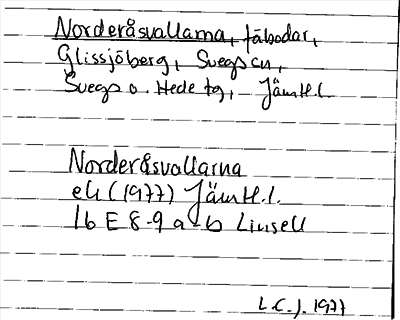 Norderåsvallarna, fäbodar,
Glissjöberg, Svegs sn,
Svegs o. Hede tg, Jämtl. l.
Norderåsvallarna
ek (1977) Jämtl. l.
16 E 8-9 a-b Linsell
L.C.J. 1977